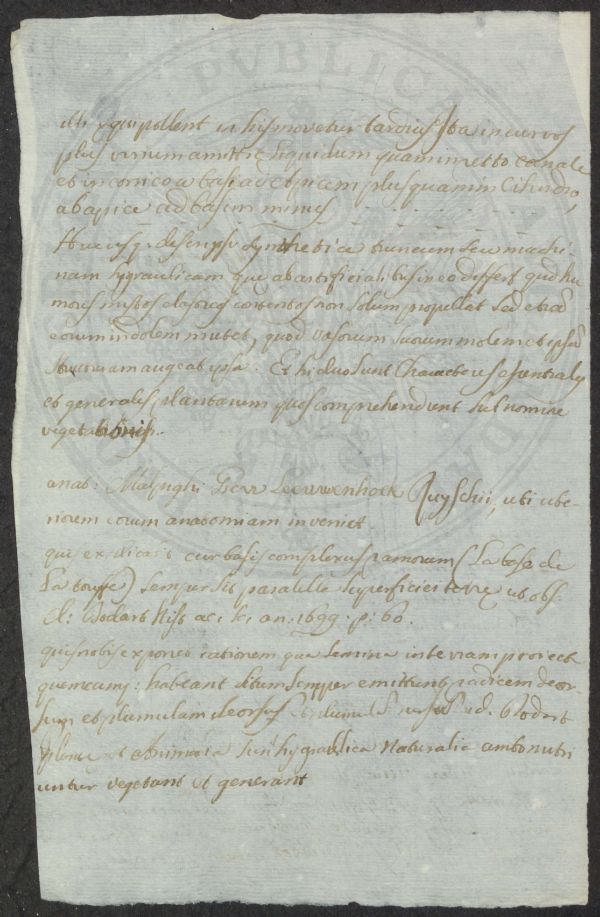 illi æquipollent in his movetur tardius Ita in curvos
plus virium amittit liquidum quam in recto canale
et in conico a basi ad apicem plus quam in Cilindro,
ab apice ad basim minus
Hucusq: descripsi synthetice truncum seu machi-
nam hygraulicam que ab artificialibus in eo differt quod hu
mores non solum propellat sed etiã
eorum indolem mutet, quod vasorum suorum molem et ipsã
structuram augeat ipsa. Et hi duo sunt Characteres essentiales
et generales plantarum quos comprehendunt sub nomine
vegetationis.
anat: Malpighi Leeuwenhoek Ruyschii, ubi ube-
riorem eorum anatomiam inveniet
qui explicavit cur basis complexus ramorum (La base de
La touffe) semper sit parallela superficiei terre ut obs.
Cl: Dodart Hist ac. sc. an. 1699. p: 60.
quis nobis exponet rationem qua semina in terram proiecta
quemcumq: habeant situm semper emittunt radicem deor
sum et plumulam Dodart
plante et animata sunt hygraulica naturalia ambo nutri
untur vegetant et generant